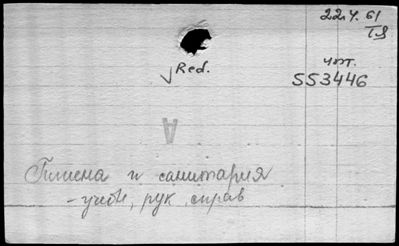 22.4.61
Тд
Red.
чит.
553446
A
Гигиена и санитария
- учебн, рук, справ